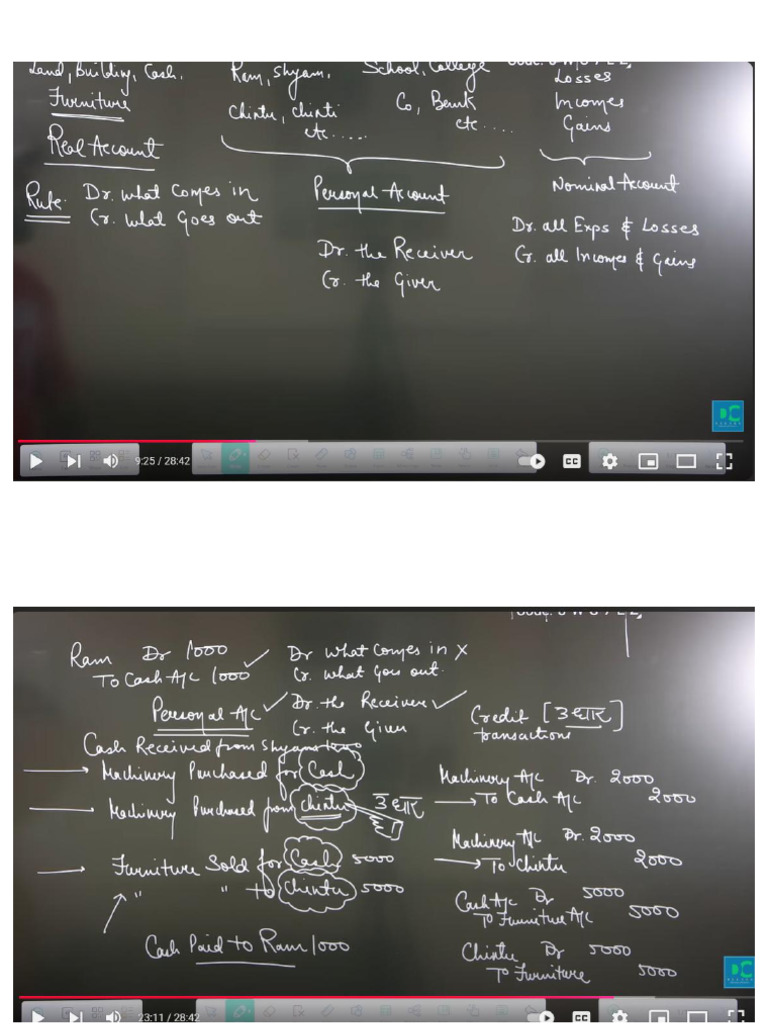 Land, Building, Cash,
Furniture
Real Account
Rule. Dr. what Comes in
Cr. what Goes out
Ram, Shyam,
Chintu, chinti
etc.....
School, College
Co, Bank
etc.....
Personal Account
Dr. the Receiver
Cr. the Giver
Losses
Incomes
Gains
Nominal Account
Dr. all Exps & Losses
Cr. all Incomes & Gains
DC
9:25 / 28:42
CC
Ram Dr 1000
To Cash A/c 1000
Dr what comes in X
Cr. what Goes out.
Personal A/c
Dr. the Receiver
Cr. the Giver
Credit [उधार]
transactions
Cash Received from Shyam 1000
Machinery Purchased for Cash
Machinery Purchased from Chintu उधार
Furniture Sold for Cash 5000
" " to Chintu 5000
Cash Paid to Ram 1000
Machinery A/c Dr. 2000
To Cash A/c 2000
Machinery A/c Dr. 2000
To Chintu 2000
Cash A/c Dr 5000
To Furniture A/c 5000
Chintu Dr 5000
To Furniture 5000
DC
23:11 / 28:42
CC